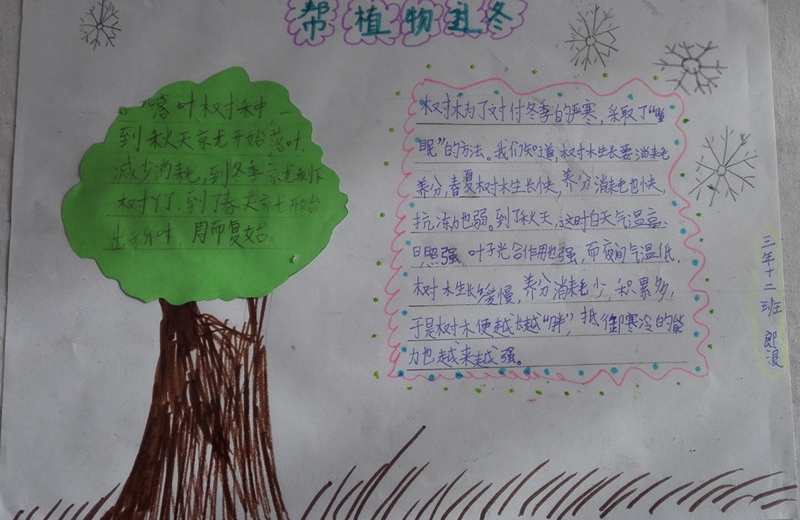 帮植物过冬
落叶树种一
到秋天就开始落叶,
减少消耗,到冬季就剩下
树丫,到了春天就开始
生新叶 周而复始.
树木为了对付冬季的严寒,采取了“
眠”的方法。我们知道,树木生长要消耗
养分,春夏树木生长快,养分消耗也快,
抗冻力也弱。到了秋天,这时白天气温高,
日照强,叶子光合作用也强,而夜间气温低,
树木生长缓慢,养分消耗少,积累多,
于是树木便越长越“胖”,抵御寒冷的能
力也越来越强。
三年十二班 郎